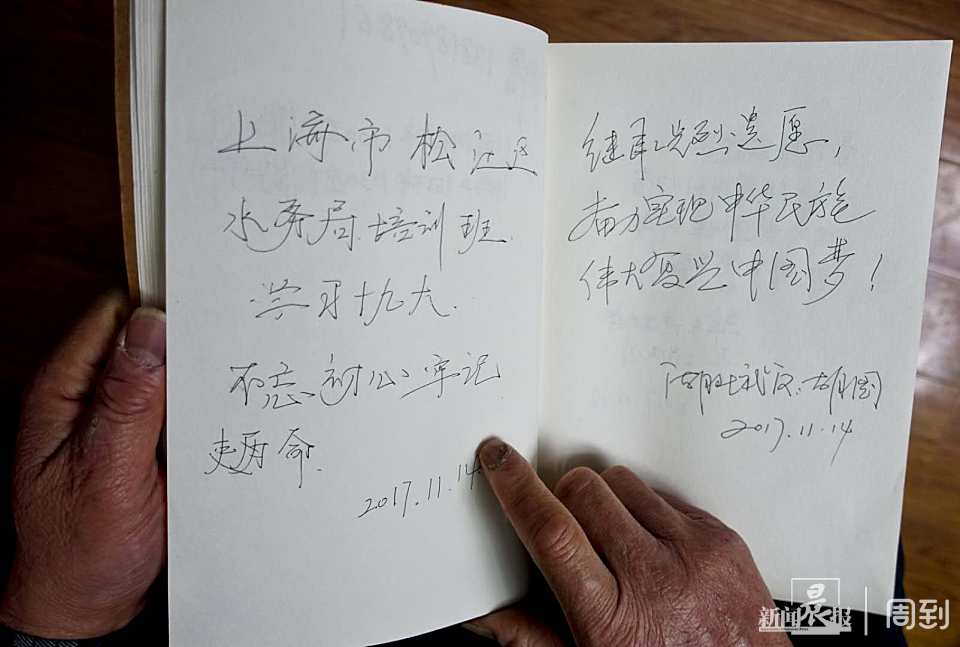 上海市松江区
水务局培训班
学习十九大.
不忘初心牢记
使命.
2017.11.14
继承先烈遗愿,
奋力实现中华民族
伟大复兴中国梦!
胡国
2017.11.14
新闻晨报 周到